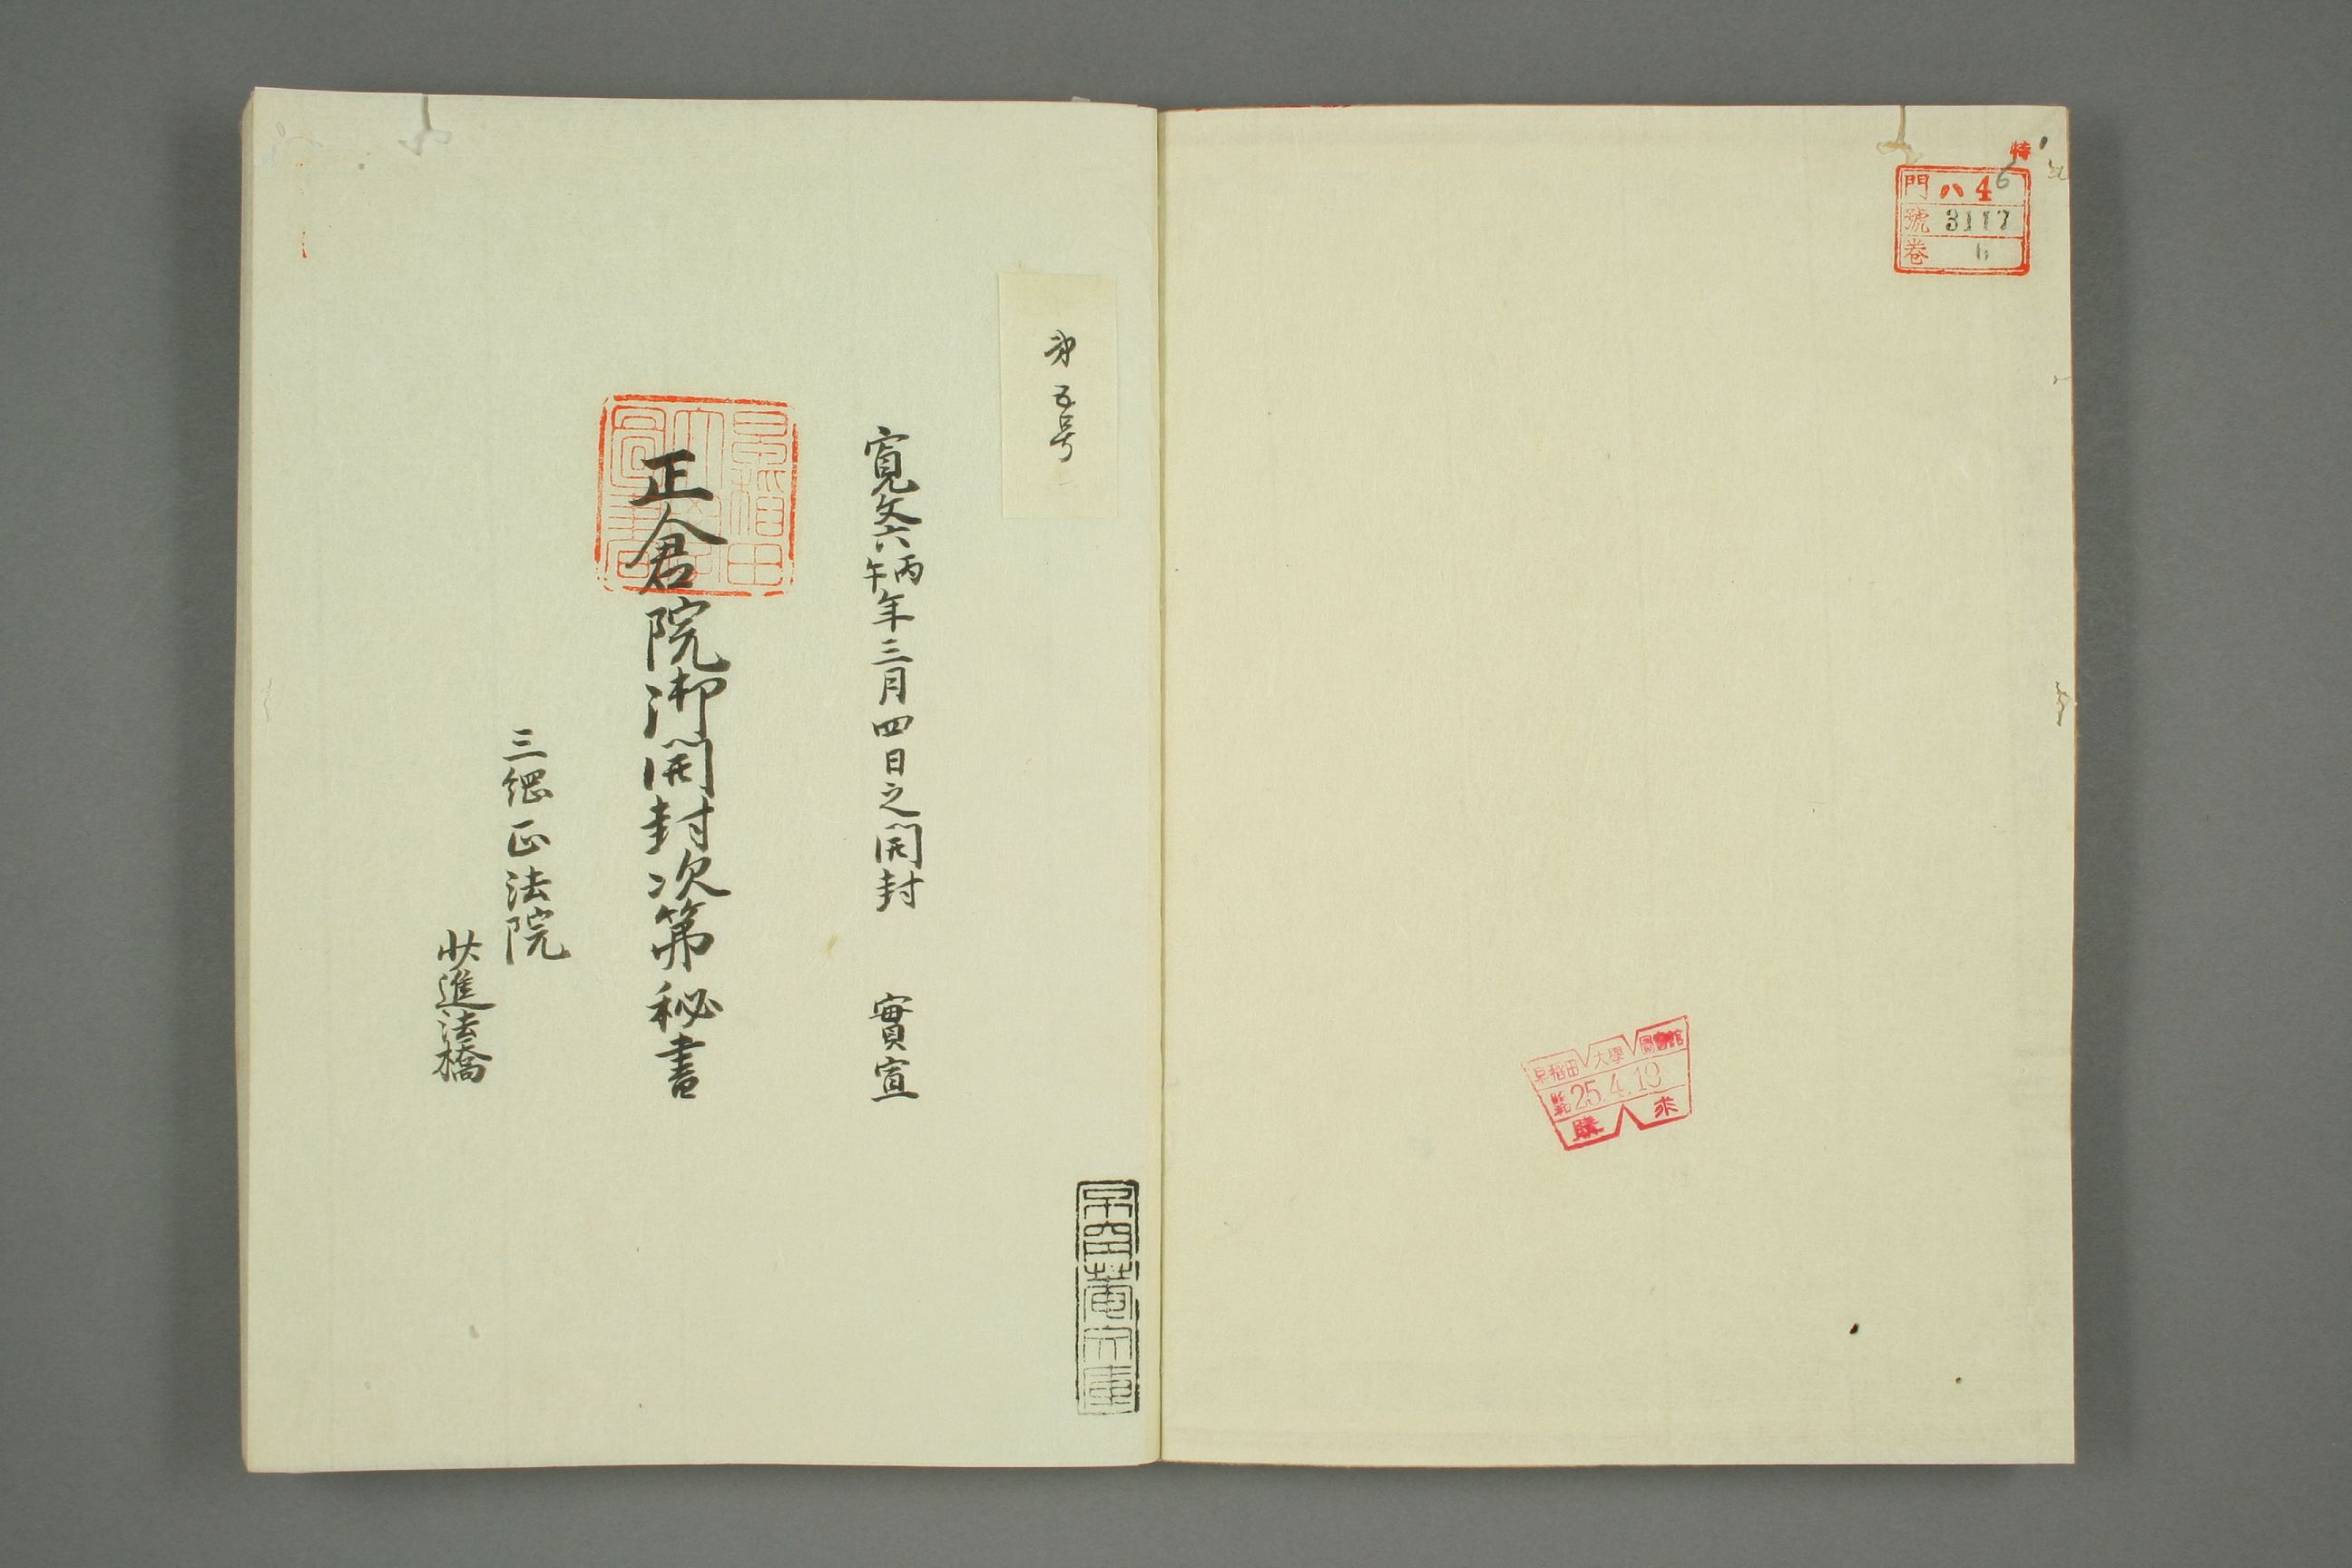 特
門 ハ4 6
號 3117
巻 6
早稲田大學圖書館
25.4.19
購求
第五号
寛文六丙午年三月四日之開封 實宣
正倉院御開封次第秘書
早稲田大學圖書
三綱正法院
状進法橋